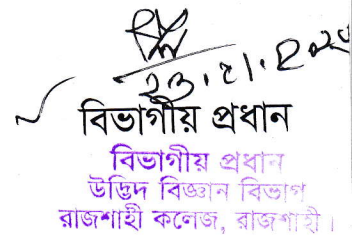 বিভাগীয় প্রধান
বিভাগীয় প্রধান
উদ্ভিদ বিজ্ঞান বিভাগ
রাজশাহী কলেজ, রাজশাহী।